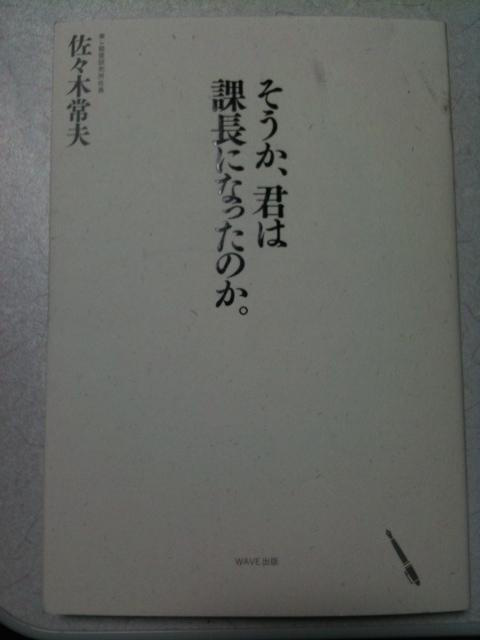 そうか、君は
課長になったのか。
佐々木常夫
WAVE出版